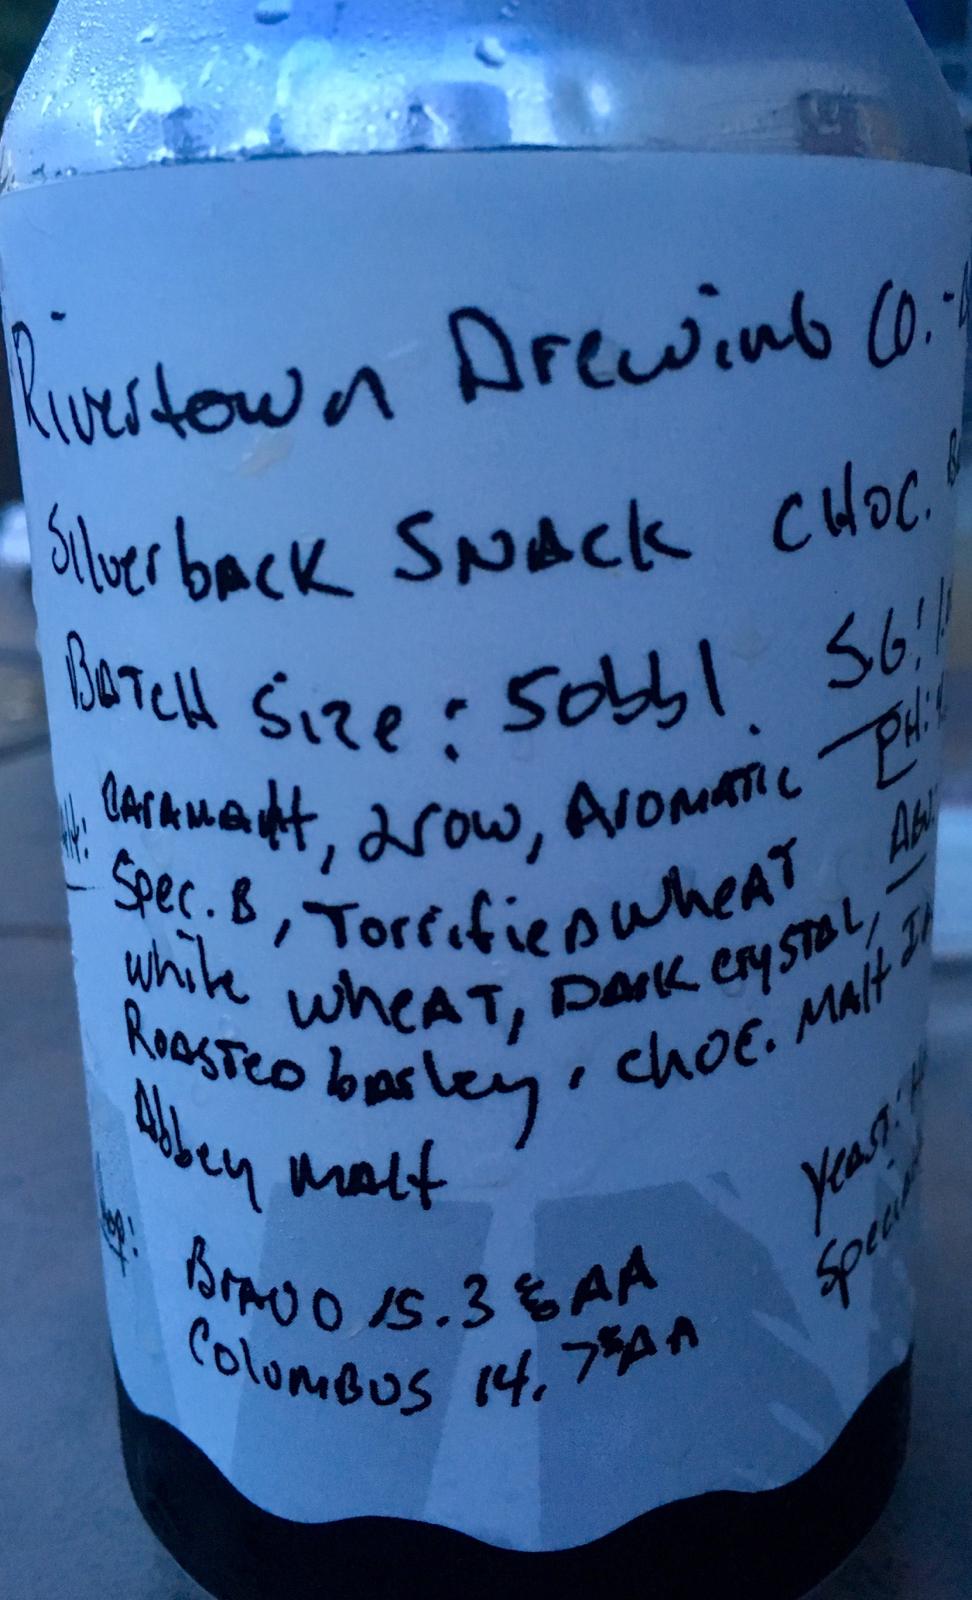 Rivertown Brewing Co. -
Silverback SNACK CHOC.
BATCH Size: 50bbl. SG: 1.
PH:
Caramalt, 2row, AROMATIC
ABV:
Spec. B, TorrifieD wheAT
white wheAT, DARK crySTAL,
ROASTED barley, choc. MAlt
Abbey malt
Yeast:
Hop:
BrAVO 15.3% AA
COlUMBUS 14.7% AA